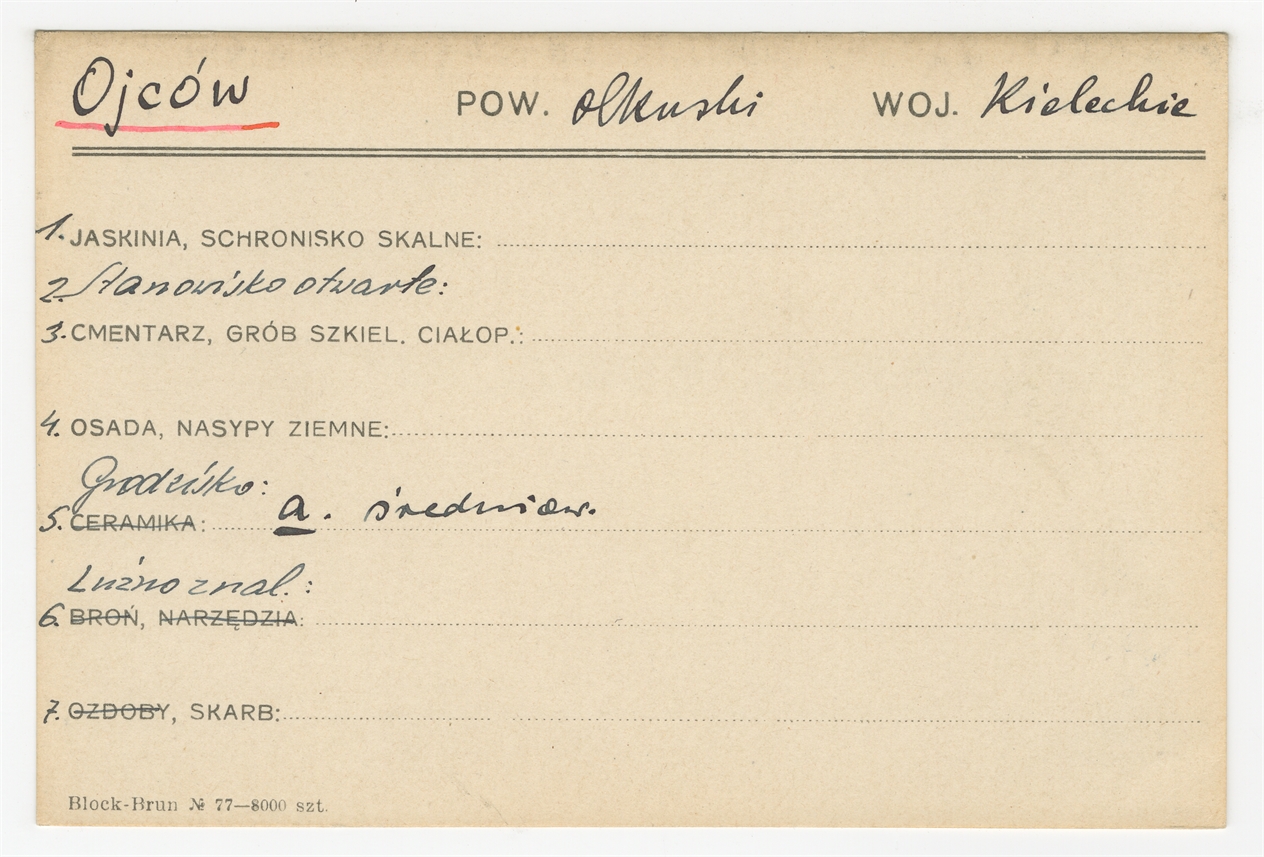 Ojców POW. olkuski WOJ. Kieleckie
1. JASKINIA, SCHRONISKO SKALNE:
2. Stanowisko otwarte:
3. CMENTARZ, GRÓB SZKIEL. CIAŁOP.:
4. OSADA, NASYPY ZIEMNE:
Grodzisko:
5. CERAMIKA: a. średniow.
Luźno znal.:
6. BROŃ, NARZĘDZIA:
7. OZDOBY, SKARB:
Block-Brun № 77—8000 szt.